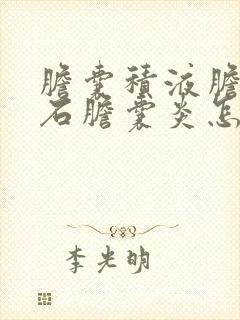 膽囊積液膽
石膽囊炎怎
李光明